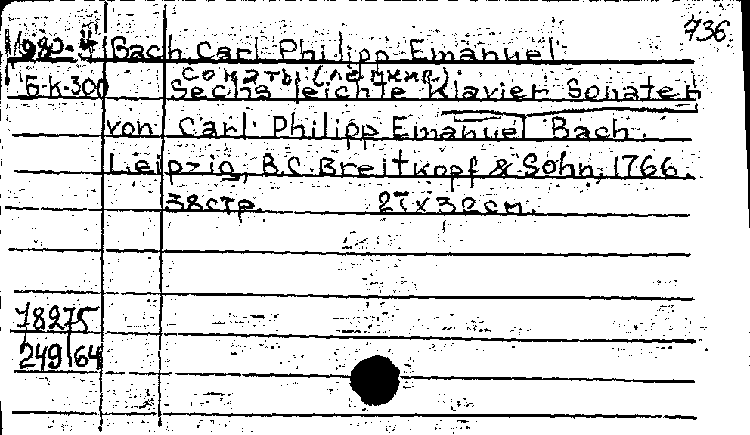 736
1980-4 Bach, Carl Philipp Emanuel
Сонаты (легкие).
Б-К-300 Sechs leichte Klavier Sonaten
von Carl Philipp Emanuel Bach.
Leipzig, B.C. Breitkopf & Sohn, 1766.
38стр. 27х32см.
18275
249164